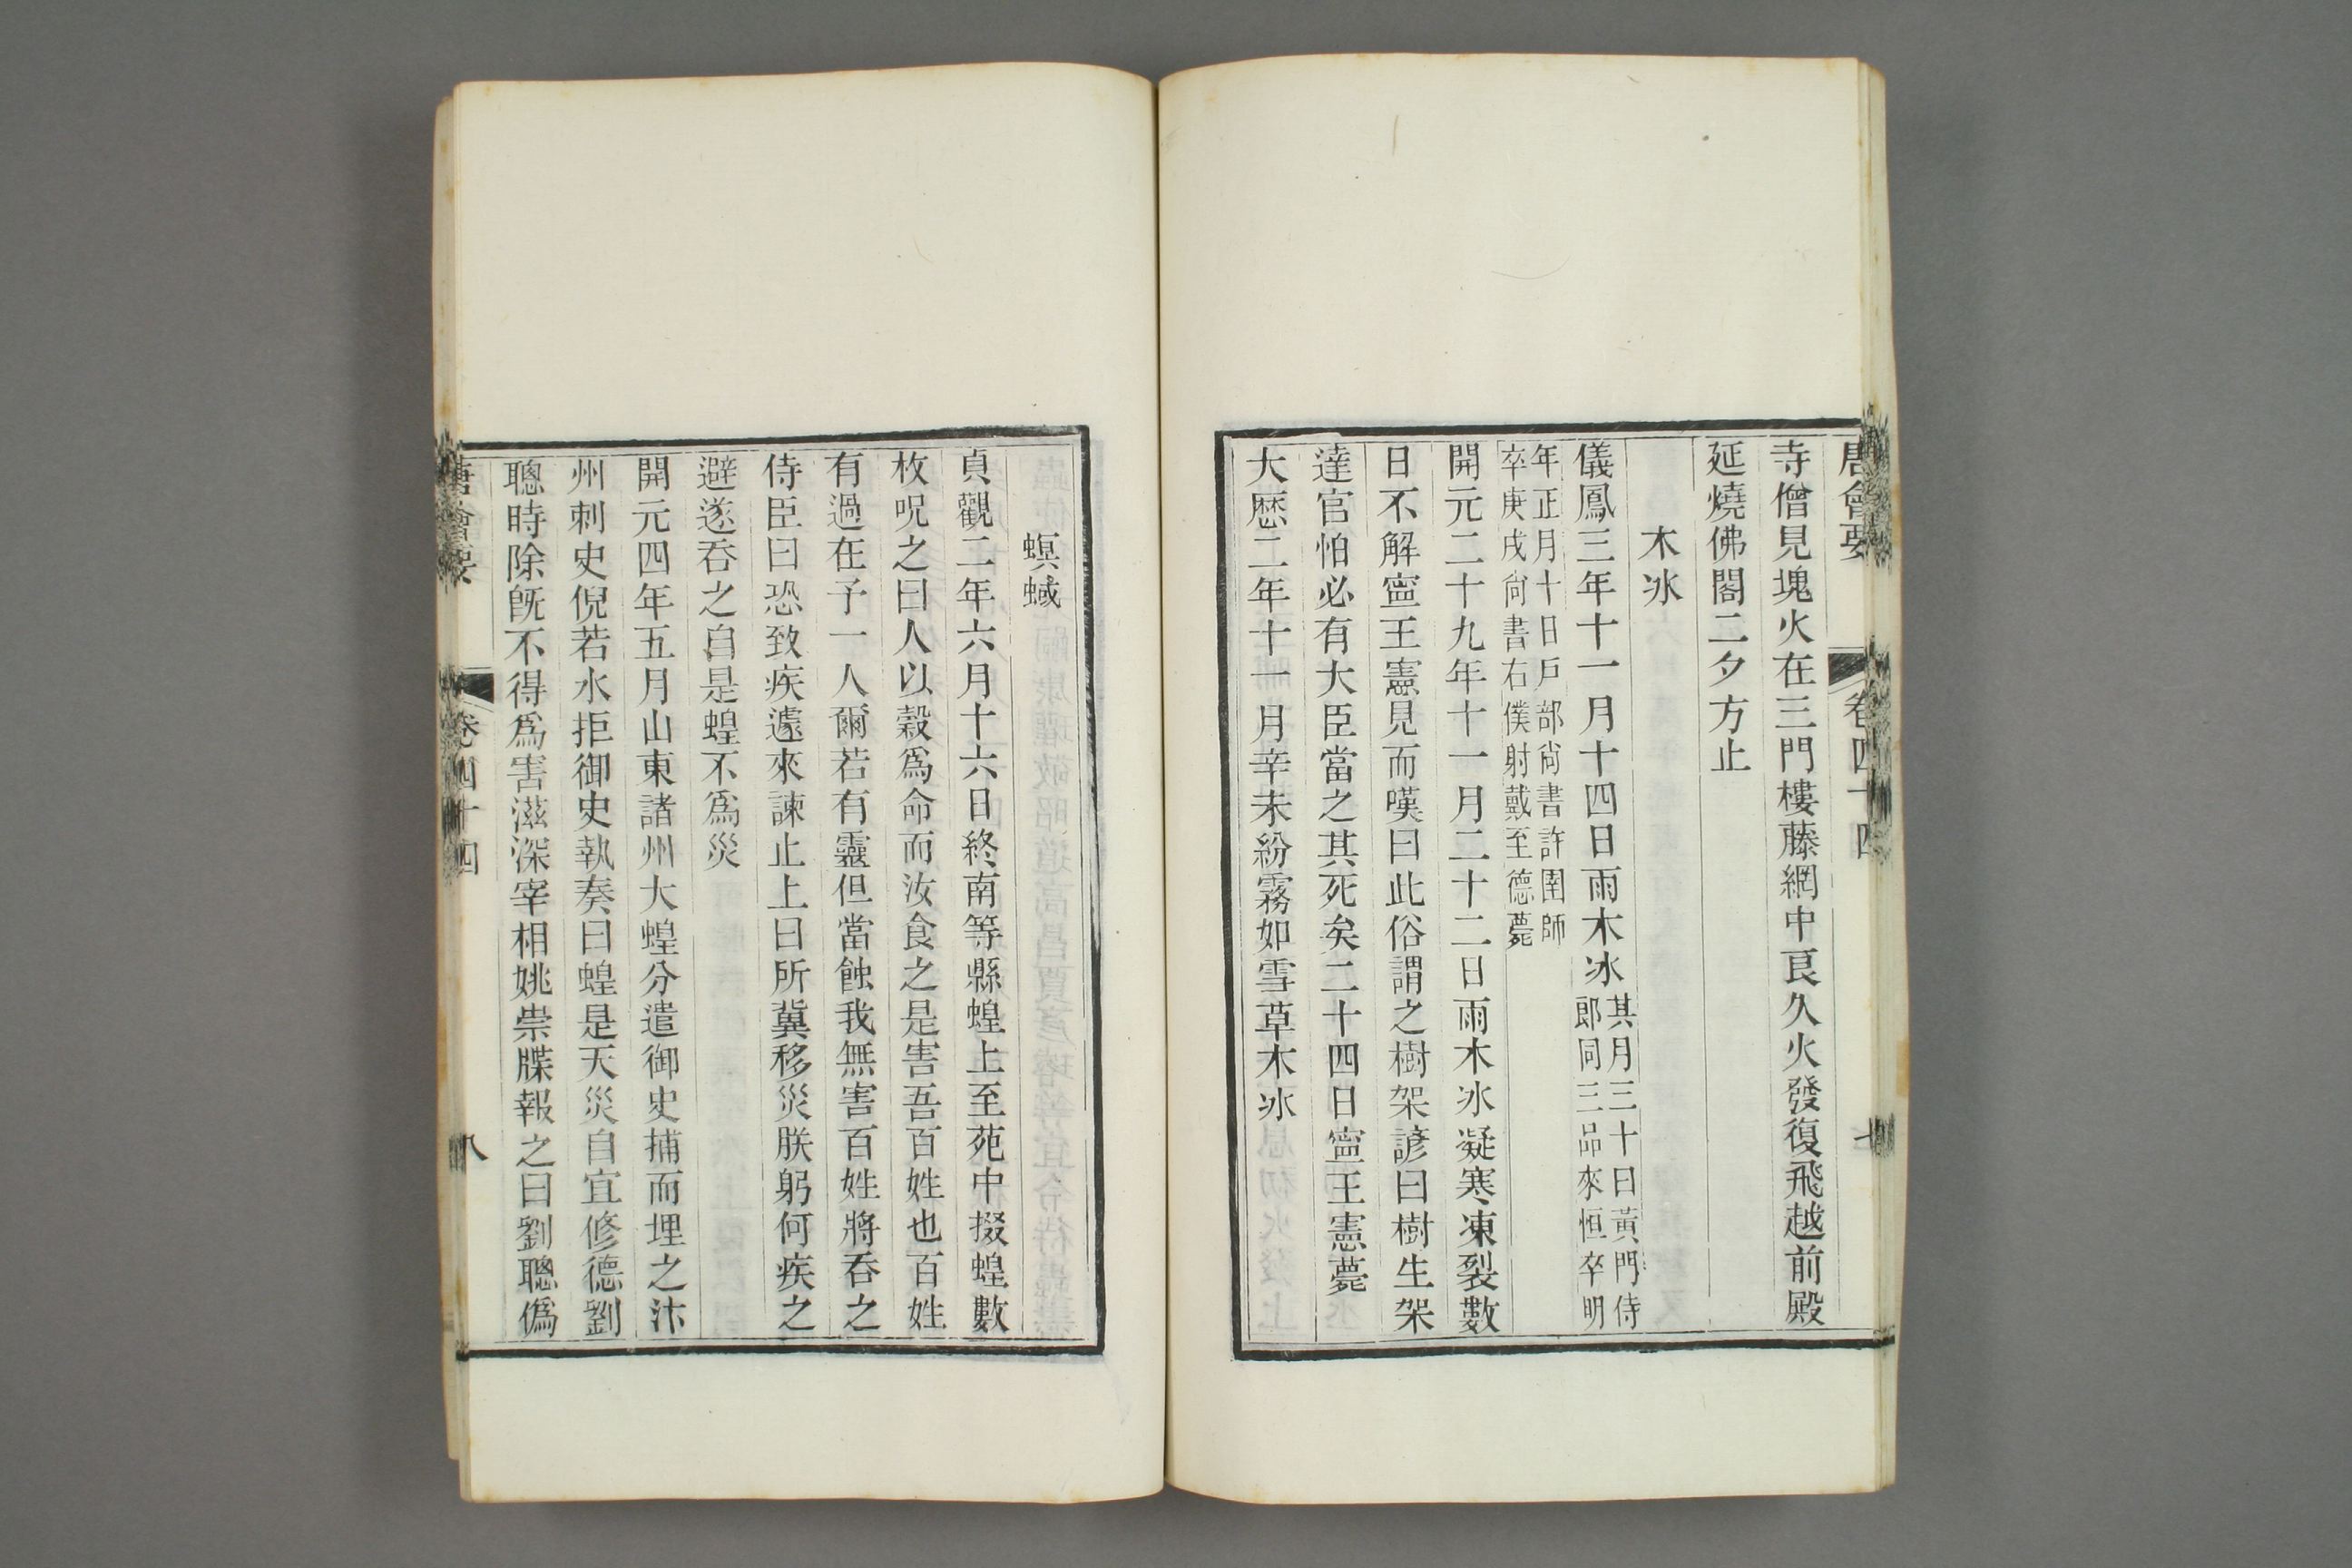 唐會要 卷四十四 七
寺僧見塊火在三門樓藤網中良久火發復飛越前殿
延燒佛閣二夕方止
木冰
儀鳳三年十一月十四日雨木冰其月三十日黃門侍
郎同三品來恒卒明
年正月十日戶部尚書許圉師
卒庚戌尚書右僕射戴至德薨
開元二十九年十一月二十二日雨木冰凝寒凍裂數
日不解寧王憲見而嘆曰此俗謂之樹架諺曰樹生架
達官怕必有大臣當之其死矣二十四日寧王憲薨
大歷二年十一月辛未紛霧如雪草木冰
螟蜮
貞觀二年六月十六日終南等縣蝗上至苑中掇蝗數
枚呪之曰人以穀爲命而汝食之是害吾百姓也百姓
有過在予一人爾若有靈但當蝕我無害百姓將吞之
侍臣曰恐致疾遽來諫止上曰所冀移災朕躬何疾之
避遂吞之自是蝗不爲災
開元四年五月山東諸州大蝗分遣御史捕而埋之汴
州刺史倪若水拒御史執奏曰蝗是天災自宜修德劉
聰時除旣不得爲害滋深宰相姚崇牒報之曰劉聰僞
唐會要 卷四十四 八